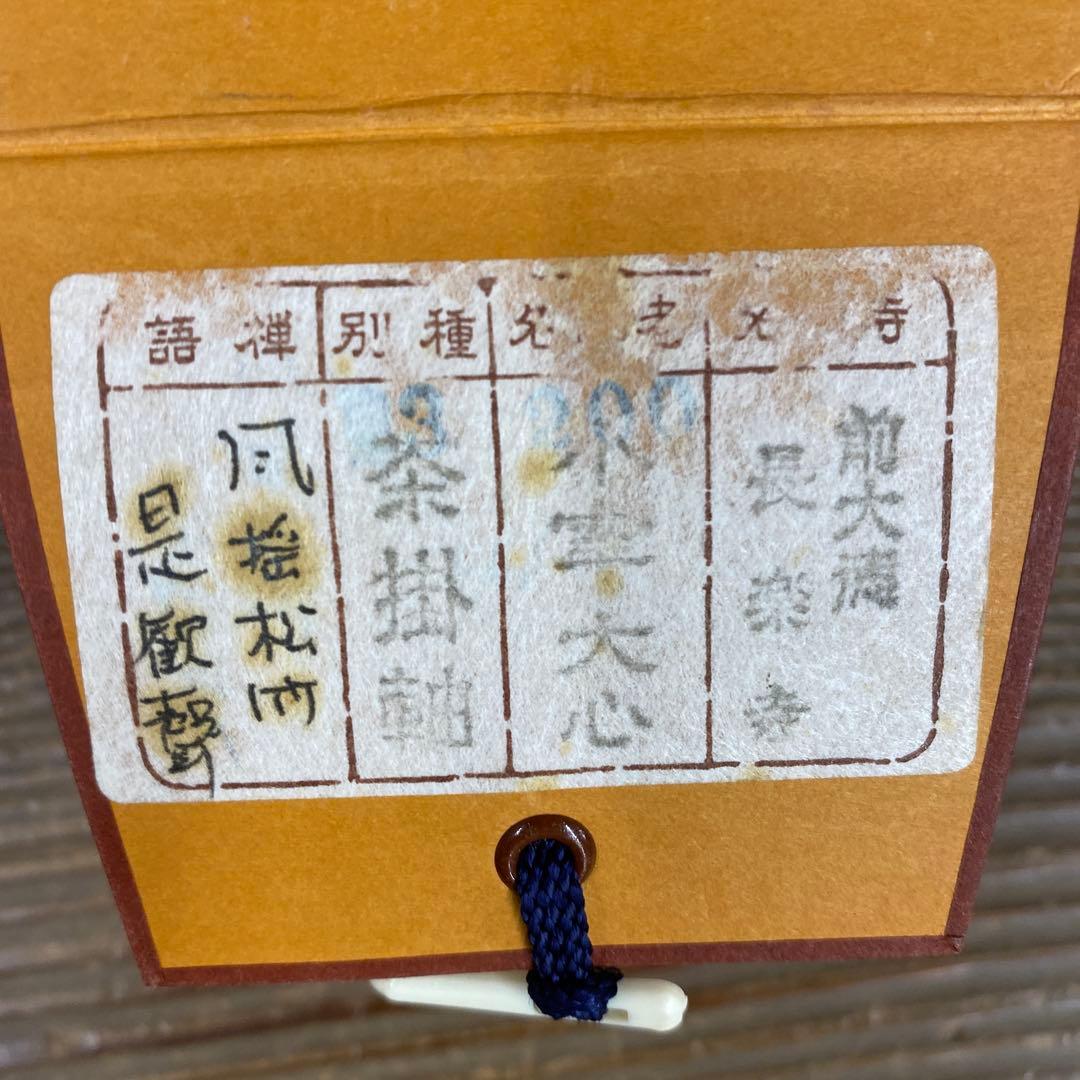 寺
前大徳
長楽寺
老
大心
種別
茶掛軸
禅語
風揺松竹
是歡聲